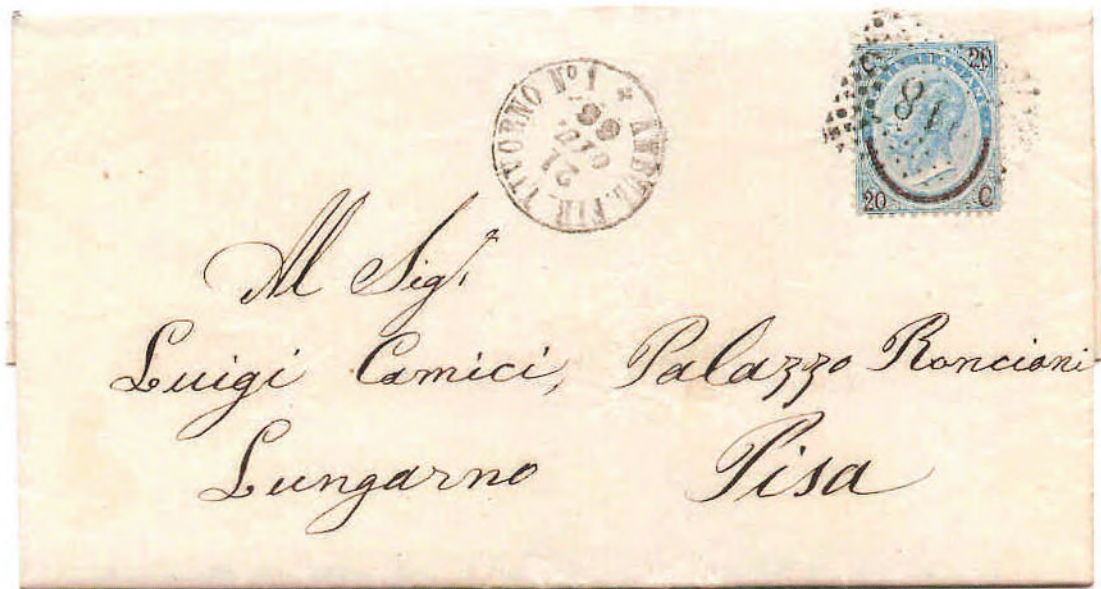 AMBUL. FIR. LIVORNO Nº 1
66
20 C
20 C
Al Sigr
Luigi Camici, Palazzo Roncioni
Lungarno Pisa